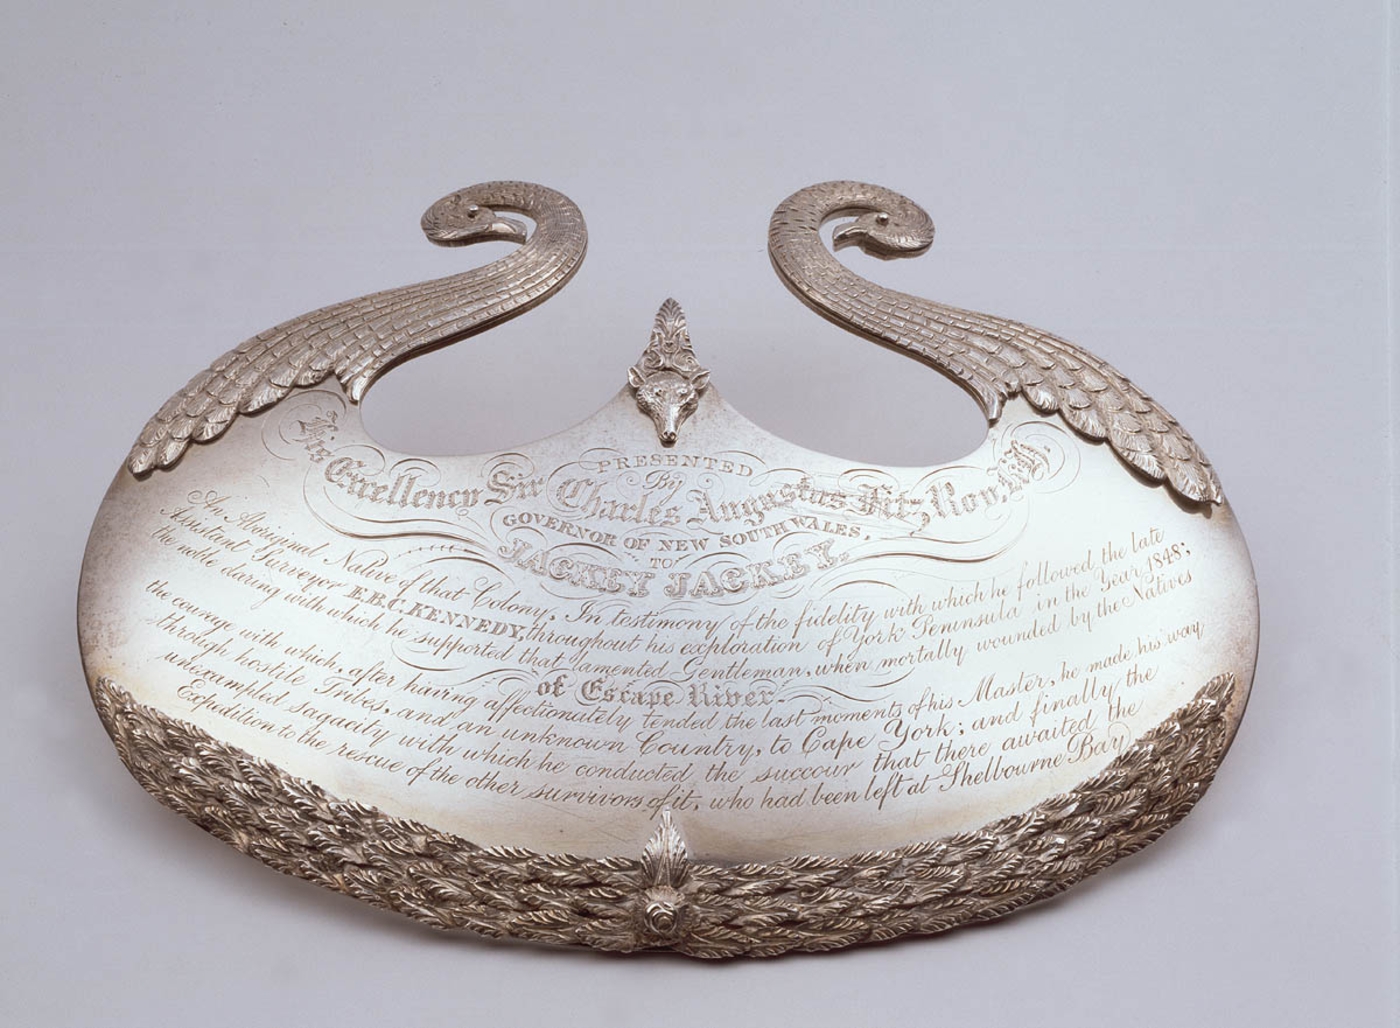 PRESENTED
By
His Excellency Sir Charles Augustus Fitz, Roy, Knt,
GOVERNOR OF NEW SOUTH WALES,
TO
JACKEY JACKEY.
An Aboriginal Native of that Colony, In testimony of the fidelity with which he followed the late
Assistant Surveyor E.B.C. KENNEDY, throughout his exploration of York Peninsula in the Year 1848;
the noble daring with which he supported that lamented Gentleman, when mortally wounded by the Natives
of Escape River.
the courage with which, after having affectionately tended the last moments of his Master, he made his way
through hostile Tribes, and an unknown Country, to Cape York; and finally the
unexampled sagacity with which he conducted the succour that there awaited the
Expedition to the rescue of the other survivors of it, who had been left at Shelbourne Bay.